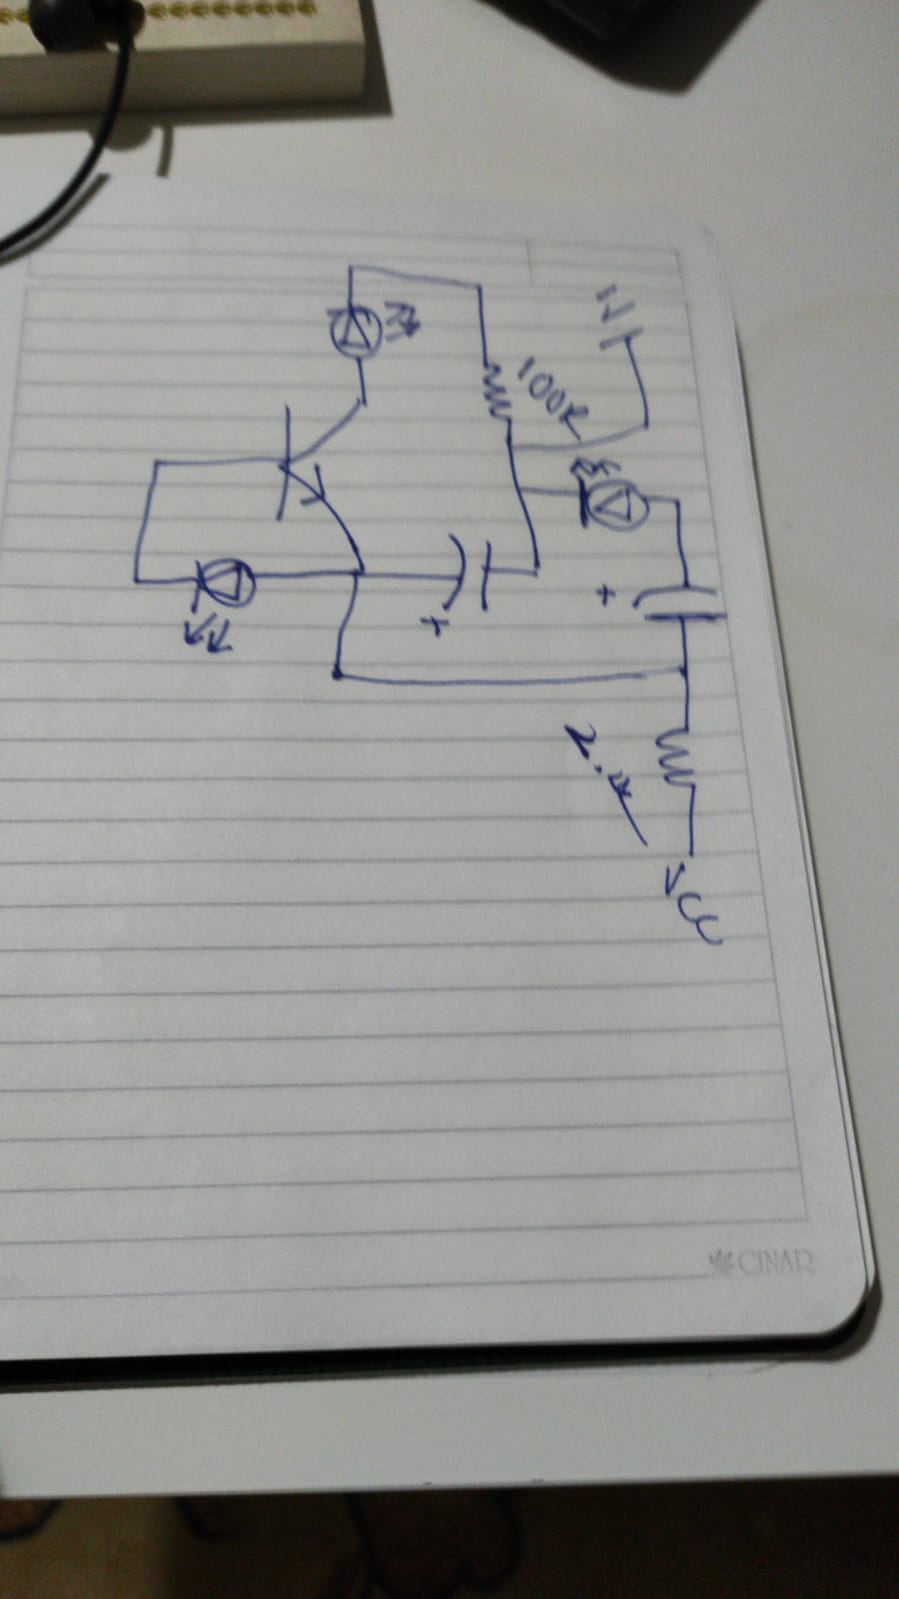 100R
+
+
2.2k
VCC
CINAR